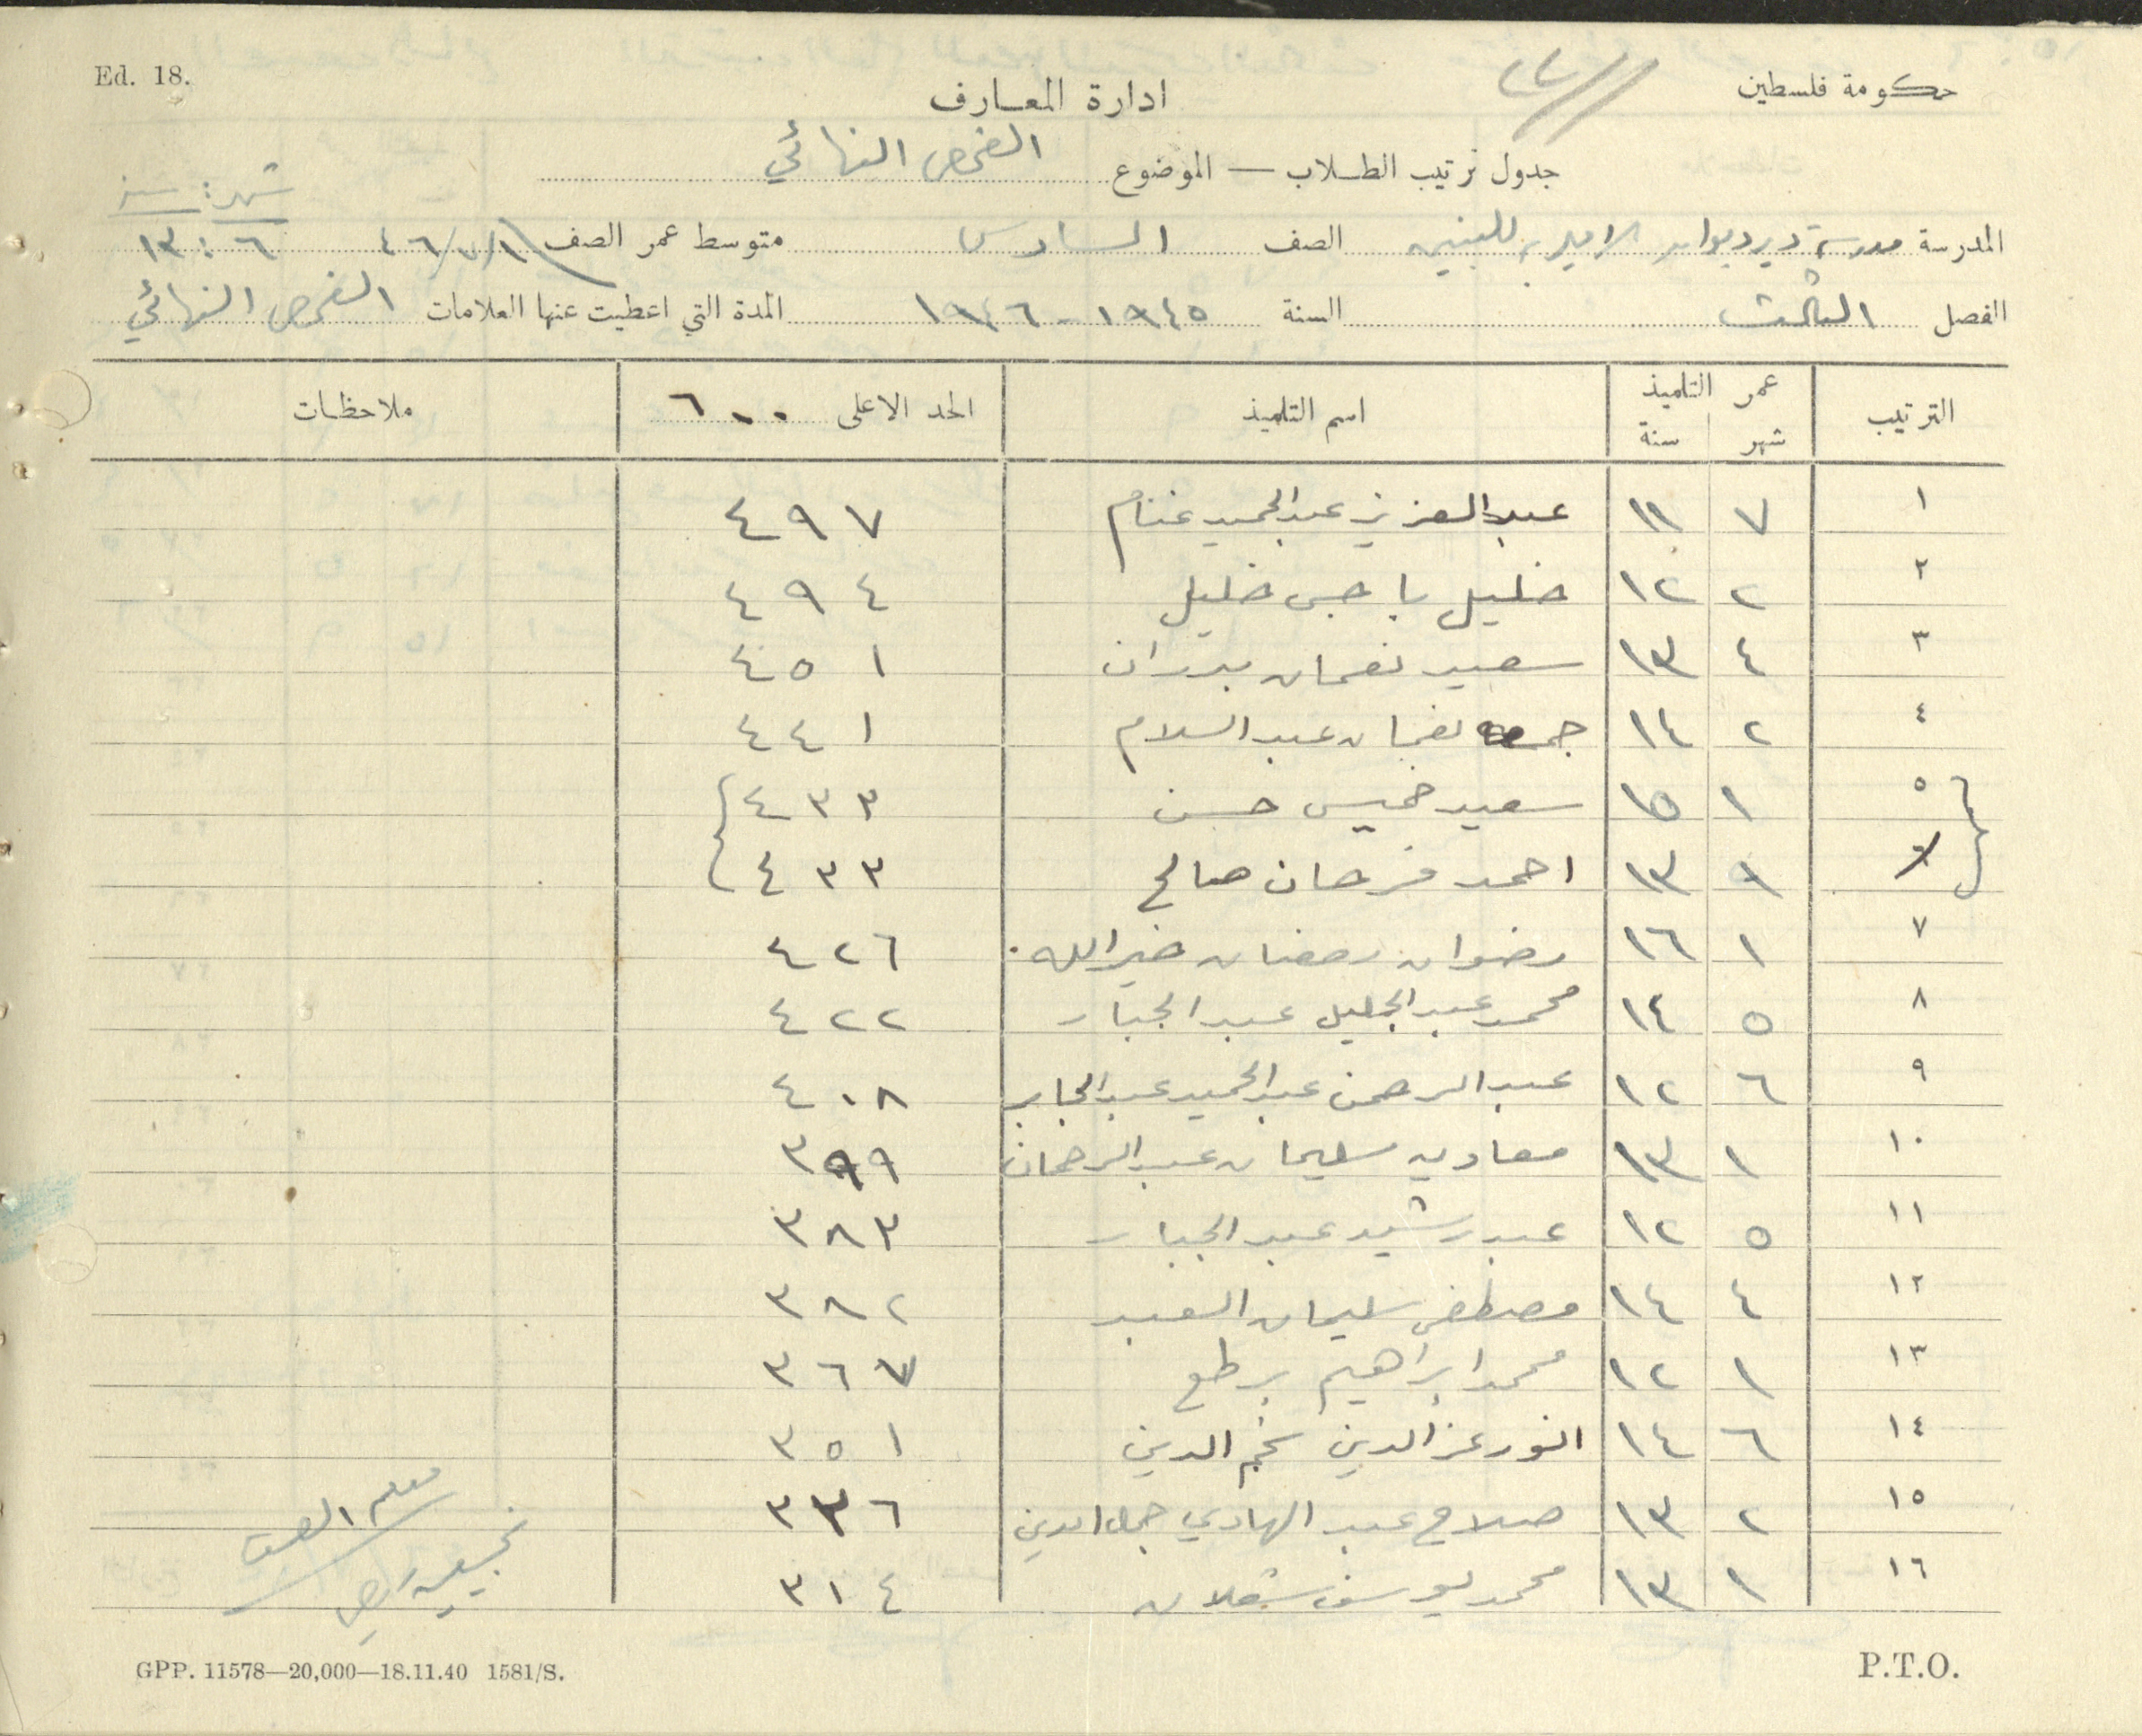 Ed. 18.
حكومة فلسطين
ادارة المعارف
جدول ترتيب الطلاب — الموضوع الفحص النهائي
شهر : سنة
المدرسة مدرسة ديرديوان الاميرية للبنين الصف السادس متوسط عمر الصف ١/٧/٤٦ ٦ : ١٣
الفصل الثالث السنة ١٩٤٥-١٩٤٦ المدة التي اعطيت عنها العلامات الفحص النهائي
الترتيب عمر التلميذ اسم التلميذ الحد الاعلى ٦٠٠ ملاحظات
شهر سنة
١ ٧ ١١ عبدالعزيز عبدالحميد غنام ٤٩٧
٢ ٢ ١٢ خليل باجس خليل ٤٩٤
٣ ٤ ١٣ سعيد نعمان بدران ٤٥١
٤ ٢ ١٤ جمعه نعمان عبد السلام ٤٤١
٥ ١ ١٥ سعيد خميس حسن ٤٣٣
٦ ٩ ١٣ احمد فرحان صالح ٤٣٣
٧ ١ ١٦ رضوان رمضان خيرالله ٤٢٦
٨ ٥ ١٤ محمد عبدالجليل عبد الجبار ٤٢٢
٩ ٦ ١٢ عبدالرحمن عبدالحميد عبدالجابر ٤٠٨
١٠ ١ ١٣ معاويه سليمان عبدالرحمان ٣٩٩
١١ ٥ ١٢ عبد رشيد عبد الجبار ٣٨٣
١٢ ٤ ١٤ مصطفى سليمان العبد ٣٨٢
١٣ ١ ١٢ محمد ابراهيم برطع ٣٦٧
١٤ ٦ ١٤ انور عزالدين نجم الدين ٣٥١
١٥ ٢ ١٣ صلاح عبد الهادي جمال الدين ٣٣٦
١٦ ١ ١٣ محمد يوسف شعلان ٣١٤
معلم الصف
GPP. 11578—20,000—18.11.40 1581/S.
P.T.O.